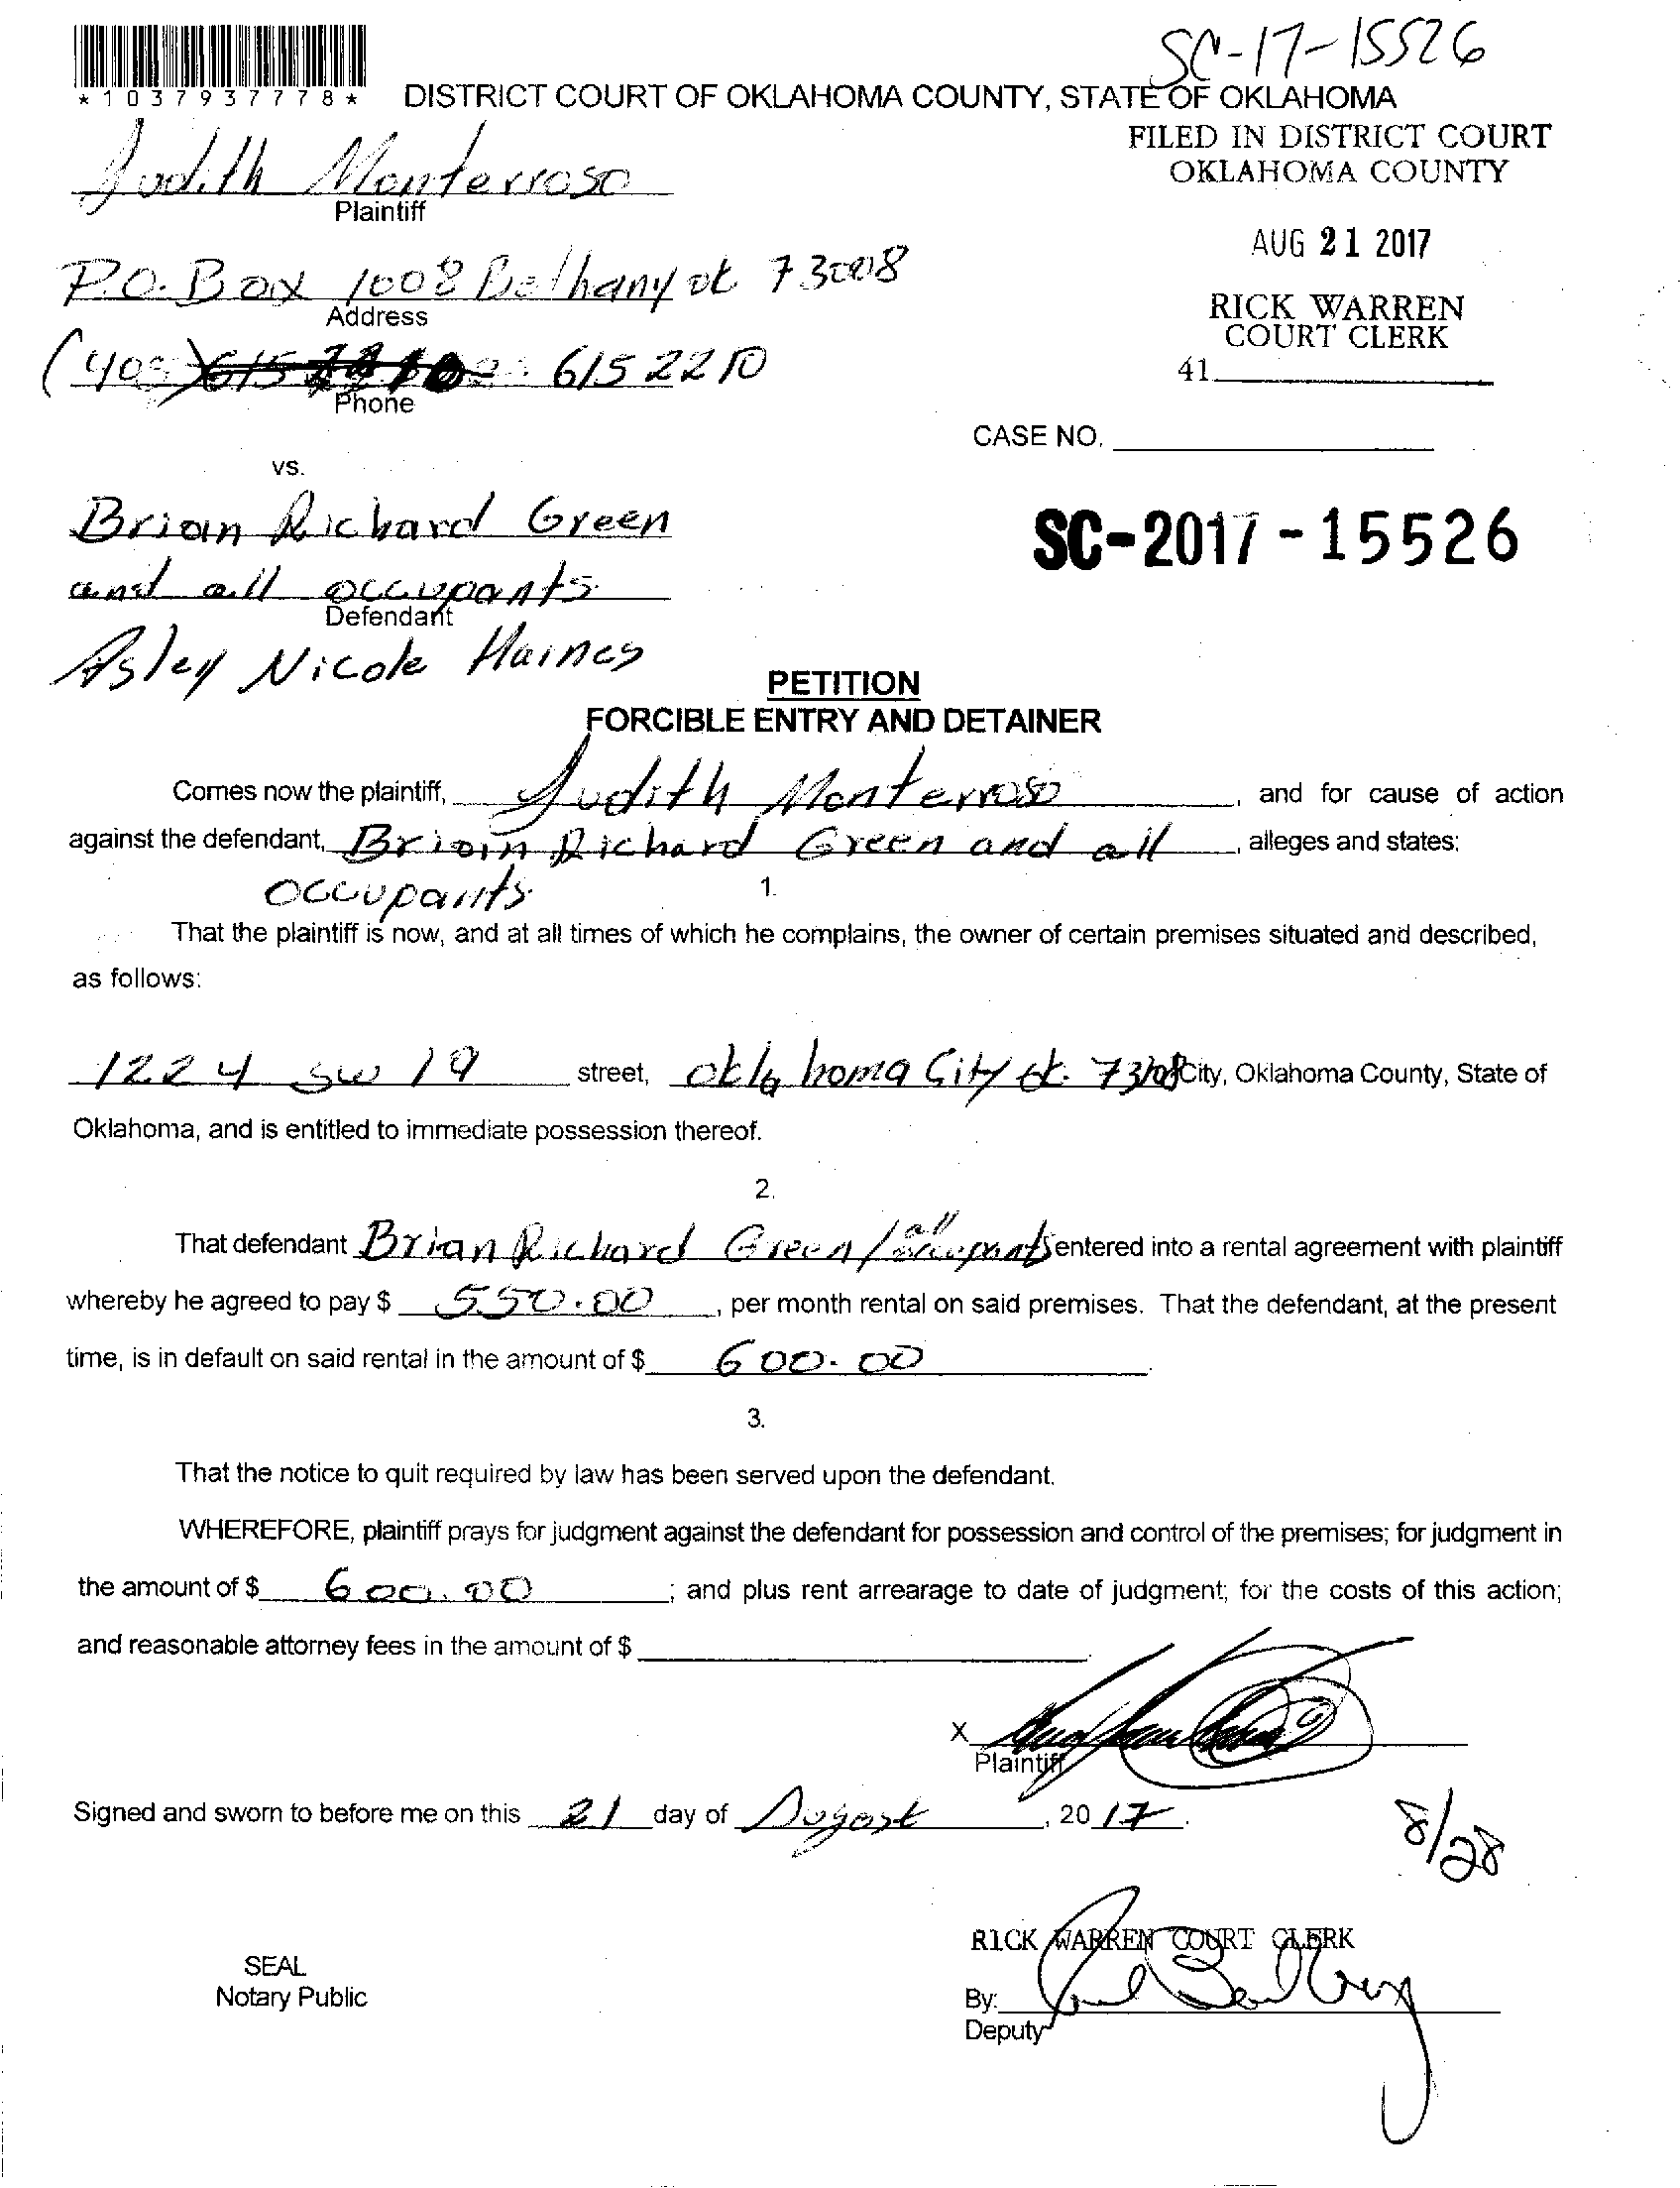 SC-17-15526
*1037937778*
DISTRICT COURT OF OKLAHOMA COUNTY, STATE OF OKLAHOMA
FILED IN DISTRICT COURT
OKLAHOMA COUNTY
Judith Monterroso
Plaintiff
AUG 21 2017
P.O. Box 1008 Bethany ok 73008
Address
RICK WARREN
COURT CLERK
(405) 615 2210
Phone
41
CASE NO.
vs.
Brian Richard Green
SC-2017-15526
and all occupants
Defendant
Asley Nicole Haines
PETITION
FORCIBLE ENTRY AND DETAINER
Comes now the plaintiff, Judith Monterroso, and for cause of action
against the defendant, Brian Richard Green and all, alleges and states:
occupants
1.
That the plaintiff is now, and at all times of which he complains, the owner of certain premises situated and described,
as follows:
1224 SW 19 street, Oklahoma City ok. 73108 City, Oklahoma County, State of
Oklahoma, and is entitled to immediate possession thereof.
2.
That defendant Brian Richard Green / all occupants entered into a rental agreement with plaintiff
whereby he agreed to pay $ 550.00, per month rental on said premises. That the defendant, at the present
time, is in default on said rental in the amount of $ 600.00
3.
That the notice to quit required by law has been served upon the defendant.
WHEREFORE, plaintiff prays for judgment against the defendant for possession and control of the premises; for judgment in
the amount of $ 600.00; and plus rent arrearage to date of judgment; for the costs of this action;
and reasonable attorney fees in the amount of $
X
Plaintiff
Signed and sworn to before me on this 21 day of August, 2017.
8/28
RICK WARREN COURT CLERK
SEAL
Notary Public
By:
Deputy